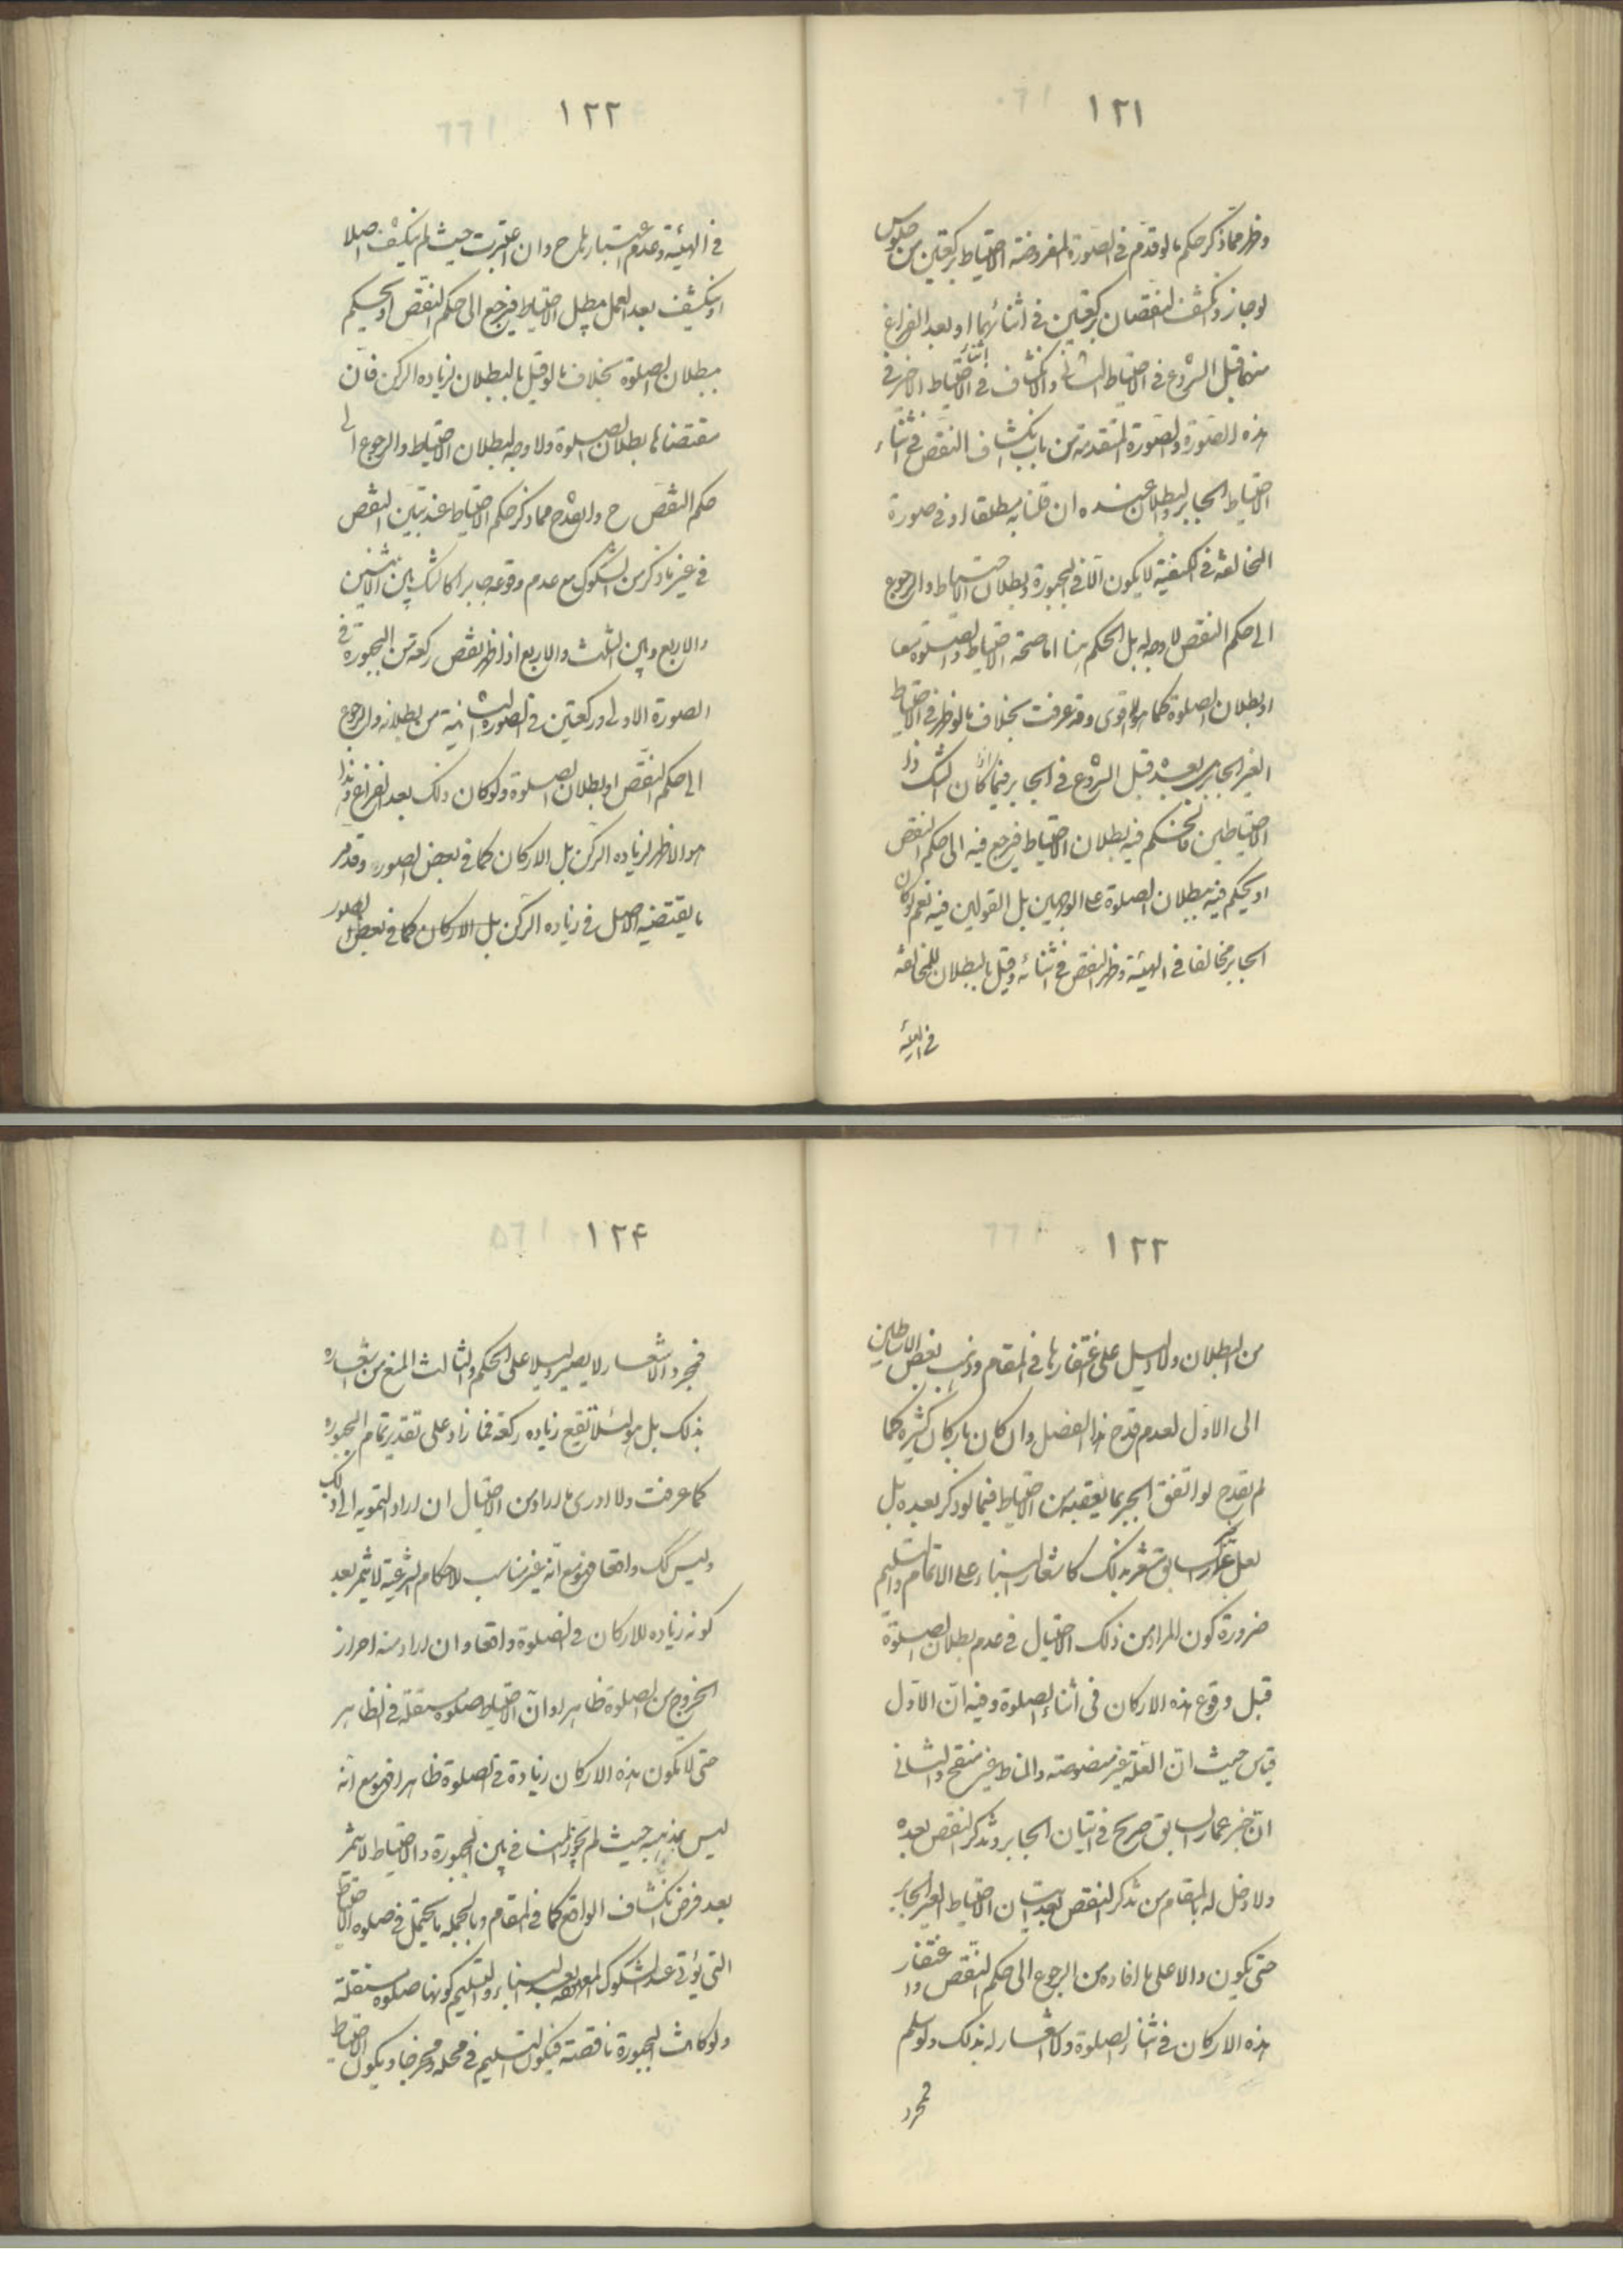 ١٢١
وظهر مما ذكر حكم ما لو قدم في الصورة المفروضة الاحتياط بركعتين من جلوس
لو جاز وانكشف النقصان بركعتين في اثنائهما او بعد الفراغ
منهما قبل الشروع في الاحتياط الثاني والانكشاف في اثناء الاحتياط الاخير في
هذه الصورة والصورة المتقدمة من باب انكشاف النقص في اثناء
الاحتياط الجابر والبطلان عنده ان قلنا به مطلقا او في صورة
المخالفة في الكيفية لا يكون الا في المجبورة وبطلان الاحتياط والرجوع
الى حكم النقص لا وجه له بل الحكم هنا اما صحة الاحتياط والصلوة معا
او بطلان الصلوة كما هو الاقوى وقد عرفت بخلاف ما لو ظهر في الاحتياط
الغير الجابر او بعده قبل الشروع في الجابر فيما كان الشك ذا
الاحتياطين فالحكم فيه بطلان الاحتياط فيرجع فيه الى حكم النقص
او يحكم فيه ببطلان الصلوة على الوجهين بل القولين فيه نعم لو كان
الجابر مخالفا في الهيئة وظهر النقص في اثنائه وقيل بالبطلان للمخالفة
في الهيئة
١٢٢
في الهيئة وعدم اعتبارها ح وان اعتبرت حيث لم ينكشف اصلا
او ينكشف بعد العمل بطل الاحتياط فيرجع الى حكم النقص او يحكم
ببطلان الصلوة بخلاف ما لو قيل بالبطلان لزيادة الركن فان
مقتضاها بطلان الصلوة ولا وجه لبطلان الاحتياط والرجوع الى
حكم النقص ح وانقدح مما ذكر حكم الاحتياط عند تبين النقص
في غير ما ذكر من الشكوك مع عدم وقوعه جابرا كالشك بين الاثنين
والاربع وبين الثلث والاربع اذا ظهر نقص ركعة من المجبورة في
الصورة الاولى وركعتين في الصورة الثانية من بطلانه والرجوع
الى حكم النقص او بطلان الصلوة ولو كان ذلك بعد الفراغ وهذا
هو الاظهر لزيادة الركن بل الاركان كما في بعض الصور وقد مر
ما يقتضيه الاصل في زيادة الركن بل الاركان كما في بعض الصور
١٢٣
من البطلان ولا دليل على اغتفارها في المقام وذهب بعض الاساطين
الى الاول لعدم قدح هذا الفصل وان كان باركان كثيرة كما
لم يقدح لو اتفق الجبر بما يعقبه من الاحتياط فيما لو ذكر بعده بل
لعل خبر عمار السابق مشعر بذلك كاشعار البناء على الاتمام والتسليم
ضرورة كون المراد من ذلك الاحتيال في عدم بطلان الصلوة
قبل وقوع هذه الاركان في اثناء الصلوة وفيه ان الاول
قياس حيث ان العلة غير منصوصة والمناط غير منقح والثاني
ان خبر عمار السابق صريح في اتيان الجابر وتذكر النقص بعده
ولا دخل له بالمقام من تذكر النقص بعد اتيان الاحتياط الغير الجابر
حتى يكون دالا على ما افاده من الرجوع الى حكم النقص واغتفار
هذه الاركان في اثناء الصلوة ولا اشعار له بذلك ولو سلم
فمجرد
١٢۴
فمجرد الاشعار لا يصير دليلا على الحكم والثالث المنع من اشعاره
بذلك بل هو لئلا تقع زيادة ركعة فما زاد على تقدير تمام المجبورة
كما عرفت ولا ادرى ما اراد من الاحتيال ان اراد التمويه الى ذلك
وليس كك واقعا فهو مع انه غير مناسب للاحكام الشرعية لا يثمر بعد
كونه زيادة للاركان في الصلوة واقعا وان اراد منه احراز
الخروج من الصلوة ظاهرا وان الاحتياط صلوة مستقلة في الظاهر
حتى لا يكون هذه الاركان زيادة في الصلوة ظاهرا فهو مع انه
ليس بمذهبه حيث لم يجوز المنافي بين المجبورة والاحتياط لا يثمر
بعد فرض انكشاف الواقع كما في المقام وبالجملة ما يحتمل في صلوة الاحتياط
التي يؤتى عند الشكوك المعهودة بعد البناء والتسليم كونها صلوة مستقلة
ولو كانت المجبورة ناقصة فيكون التسليم في محله ومخرجا ويكون الاحتياط